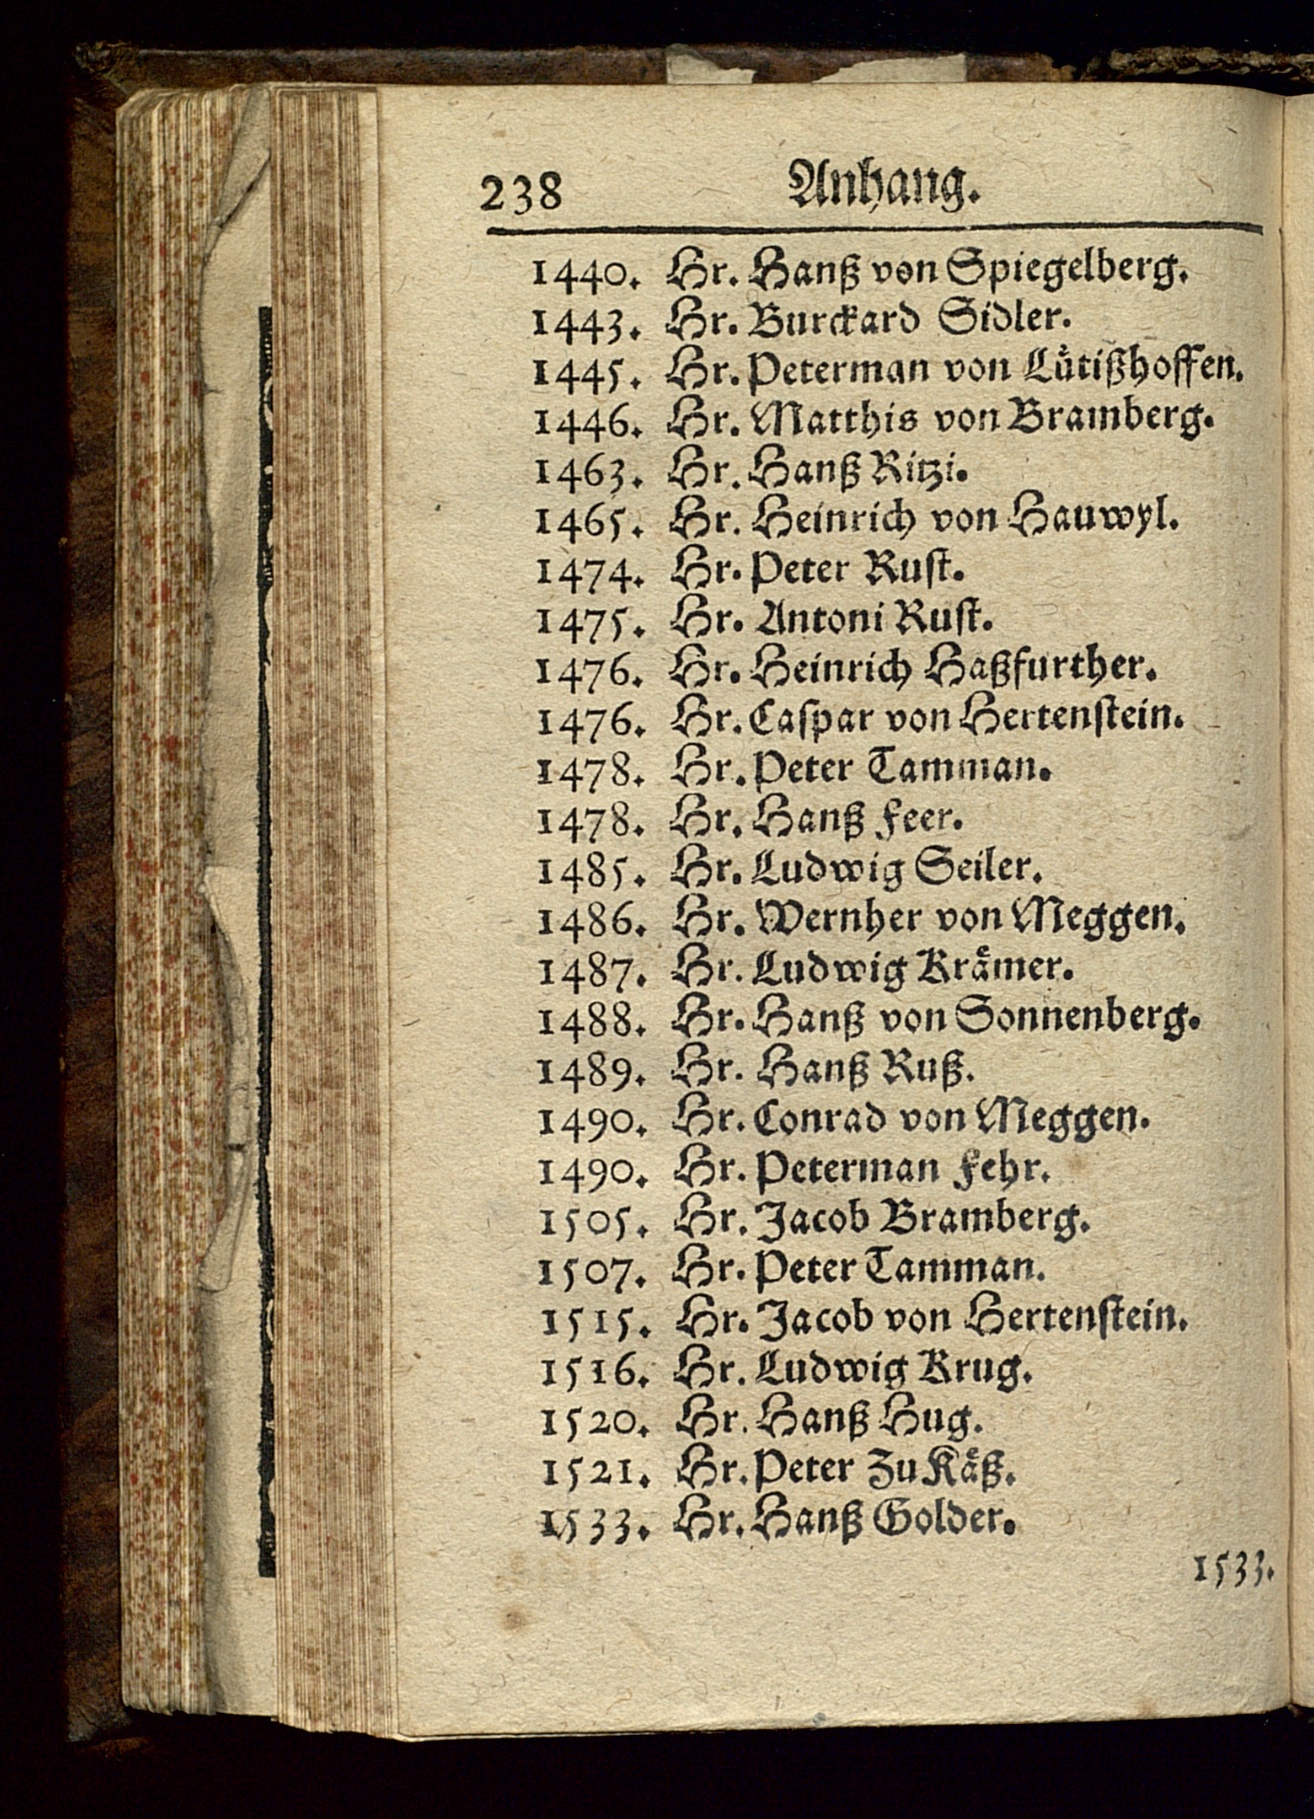 238 Anhang.
1440. Hr. Hanß von Spiegelberg.
1443. Hr. Burckard Sidler.
1445. Hr. Peterman von Lütißhoffen.
1446. Hr. Matthis von Bramberg.
1463. Hr. Hanß Ritzi.
1465. Hr. Heinrich von Hauwyl.
1474. Hr. Peter Rust.
1475. Hr. Antoni Rust.
1476. Hr. Heinrich Haßfurther.
1476. Hr. Caspar von Hertenstein.
1478. Hr. Peter Tamman.
1478. Hr. Hanß Feer.
1485. Hr. Ludwig Seiler.
1486. Hr. Wernher von Meggen.
1487. Hr. Ludwig Krämer.
1488. Hr. Hanß von Sonnenberg.
1489. Hr. Hanß Ruß.
1490. Hr. Conrad von Meggen.
1490. Hr. Peterman Fehr.
1505. Hr. Jacob Bramberg.
1507. Hr. Peter Tamman.
1515. Hr. Jacob von Hertenstein.
1516. Hr. Ludwig Krug.
1520. Hr. Hanß Hug.
1521. Hr. Peter Zu Käß.
1533. Hr. Hanß Golder.
1533.